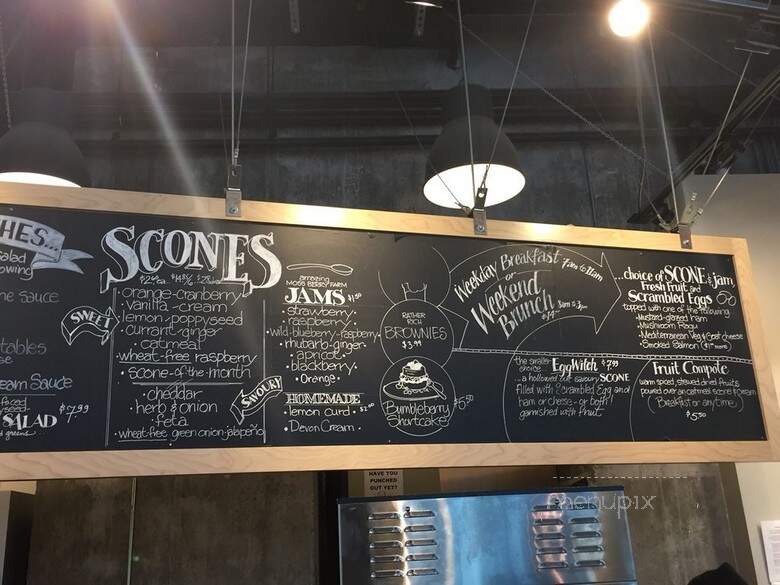 HES...
Salad
owing
ne sauce
tables
se
eam Sauce
SALAD $7.99
d greens
SCONES
SWEET
orange-cranberry
vanilla-cream
lemon-poppyseed
currant-ginger
oatmeal
wheat-free raspberry
• scone-of-the-month
SAVOURY
cheddar
herb & onion
feta
wheat-free green onion-jalapeño
amazing
MOSS BERRY FARM
JAMS $1.50
• strawberry •
• raspberry •
• wild-blueberry-raspberry •
• rhubarb-ginger •
• apricot •
• blackberry •
• Orange •
HOMEMADE
• lemon curd • $2.50
• Devon Cream •
RATHER
RICH
BROWNIES
$3.99
Bumbleberry
Shortcake
$6.50
Weekday Breakfast 7am to 11am
or
Weekend
Brunch 8am to 3pm
...choice of SCONE & jam,
Fresh Fruit and
Scrambled Eggs
topped with one of the following
• Mustard-glazed ham
• Mushroom Ragu
• Mediterranean Veg & Goat cheese
• Smoked Salmon
the smaller
choice EggWitch $7.99
...a hollowed out savoury SCONE
filled with Scrambled Egg and
ham or cheese - or both!
garnished with fruit
Fruit Compote
warm spiced, stewed dried fruits
poured over an oatmeal scone & cream
(Breakfast or anytime)
$5.50
HAVE YOU
PUNCHED
OUT YET?
menupix